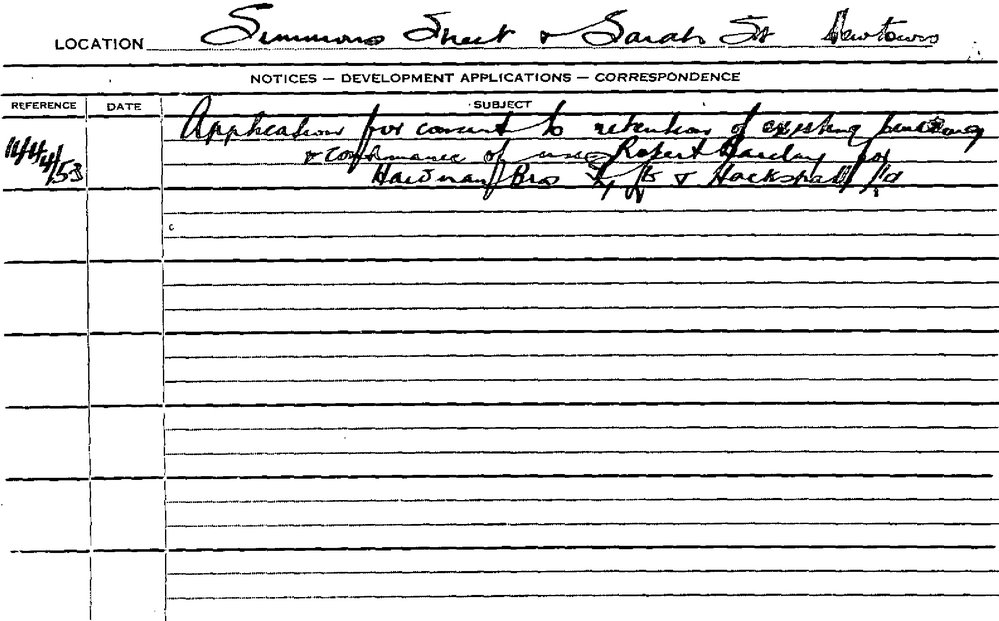 LOCATION Simmons Street & Sarah St Newtown
NOTICES — DEVELOPMENT APPLICATIONS — CORRESPONDENCE
REFERENCE DATE SUBJECT
Application for consent to retention of existing building
/53 & continuance of use Robert Barclay for
Bros & Hackshall